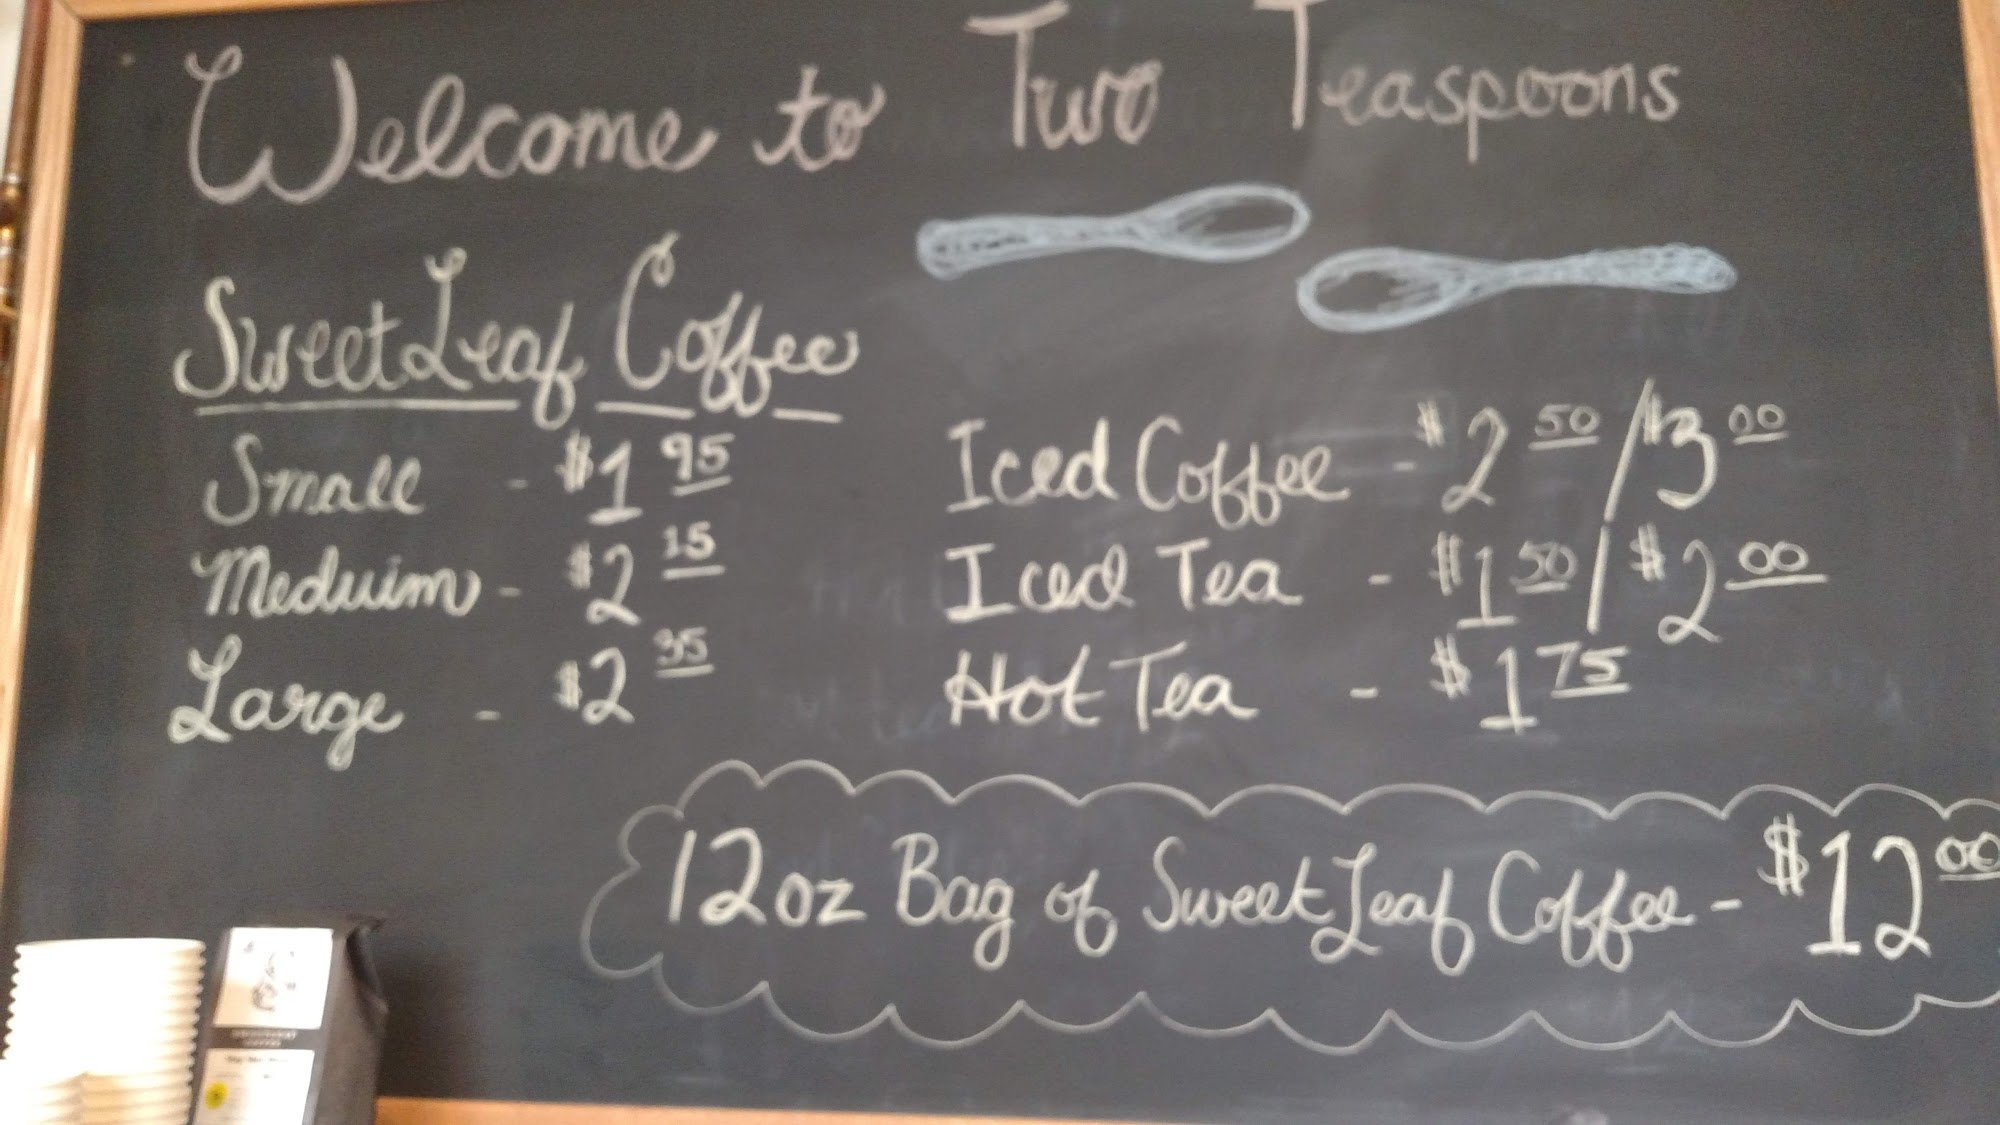 Welcome to Two Teaspoons
SweetLeaf Coffee
Small - $1 95
Meduim - $2 15
Large - $2 35
Iced Coffee - $2 50 / $3 00
Iced Tea - $1 50 / $2 00
Hot Tea - $1 75
12oz Bag of SweetLeaf Coffee - $12 00